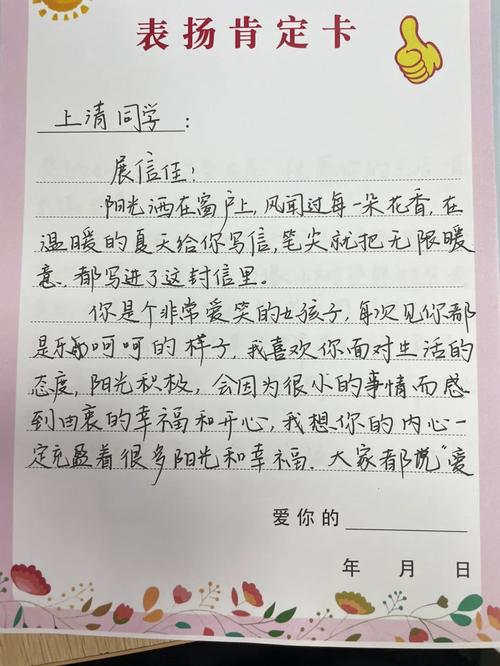 表扬肯定卡
上清同学：
展信佳！
阳光洒在窗户上，风闻过每一朵花香，在
温暖的夏天给你写信，笔尖就把无限暖
意，都写进了这封信里。
你是个非常爱笑的女孩子，每次见你都
是乐呵呵的样子，我喜欢你面对生活的
态度，阳光积极，会因为很小的事情而感
到由衷的幸福和开心，我想你的内心一
定充盈着很多阳光和幸福．大家都说“爱
爱你的
年 月 日